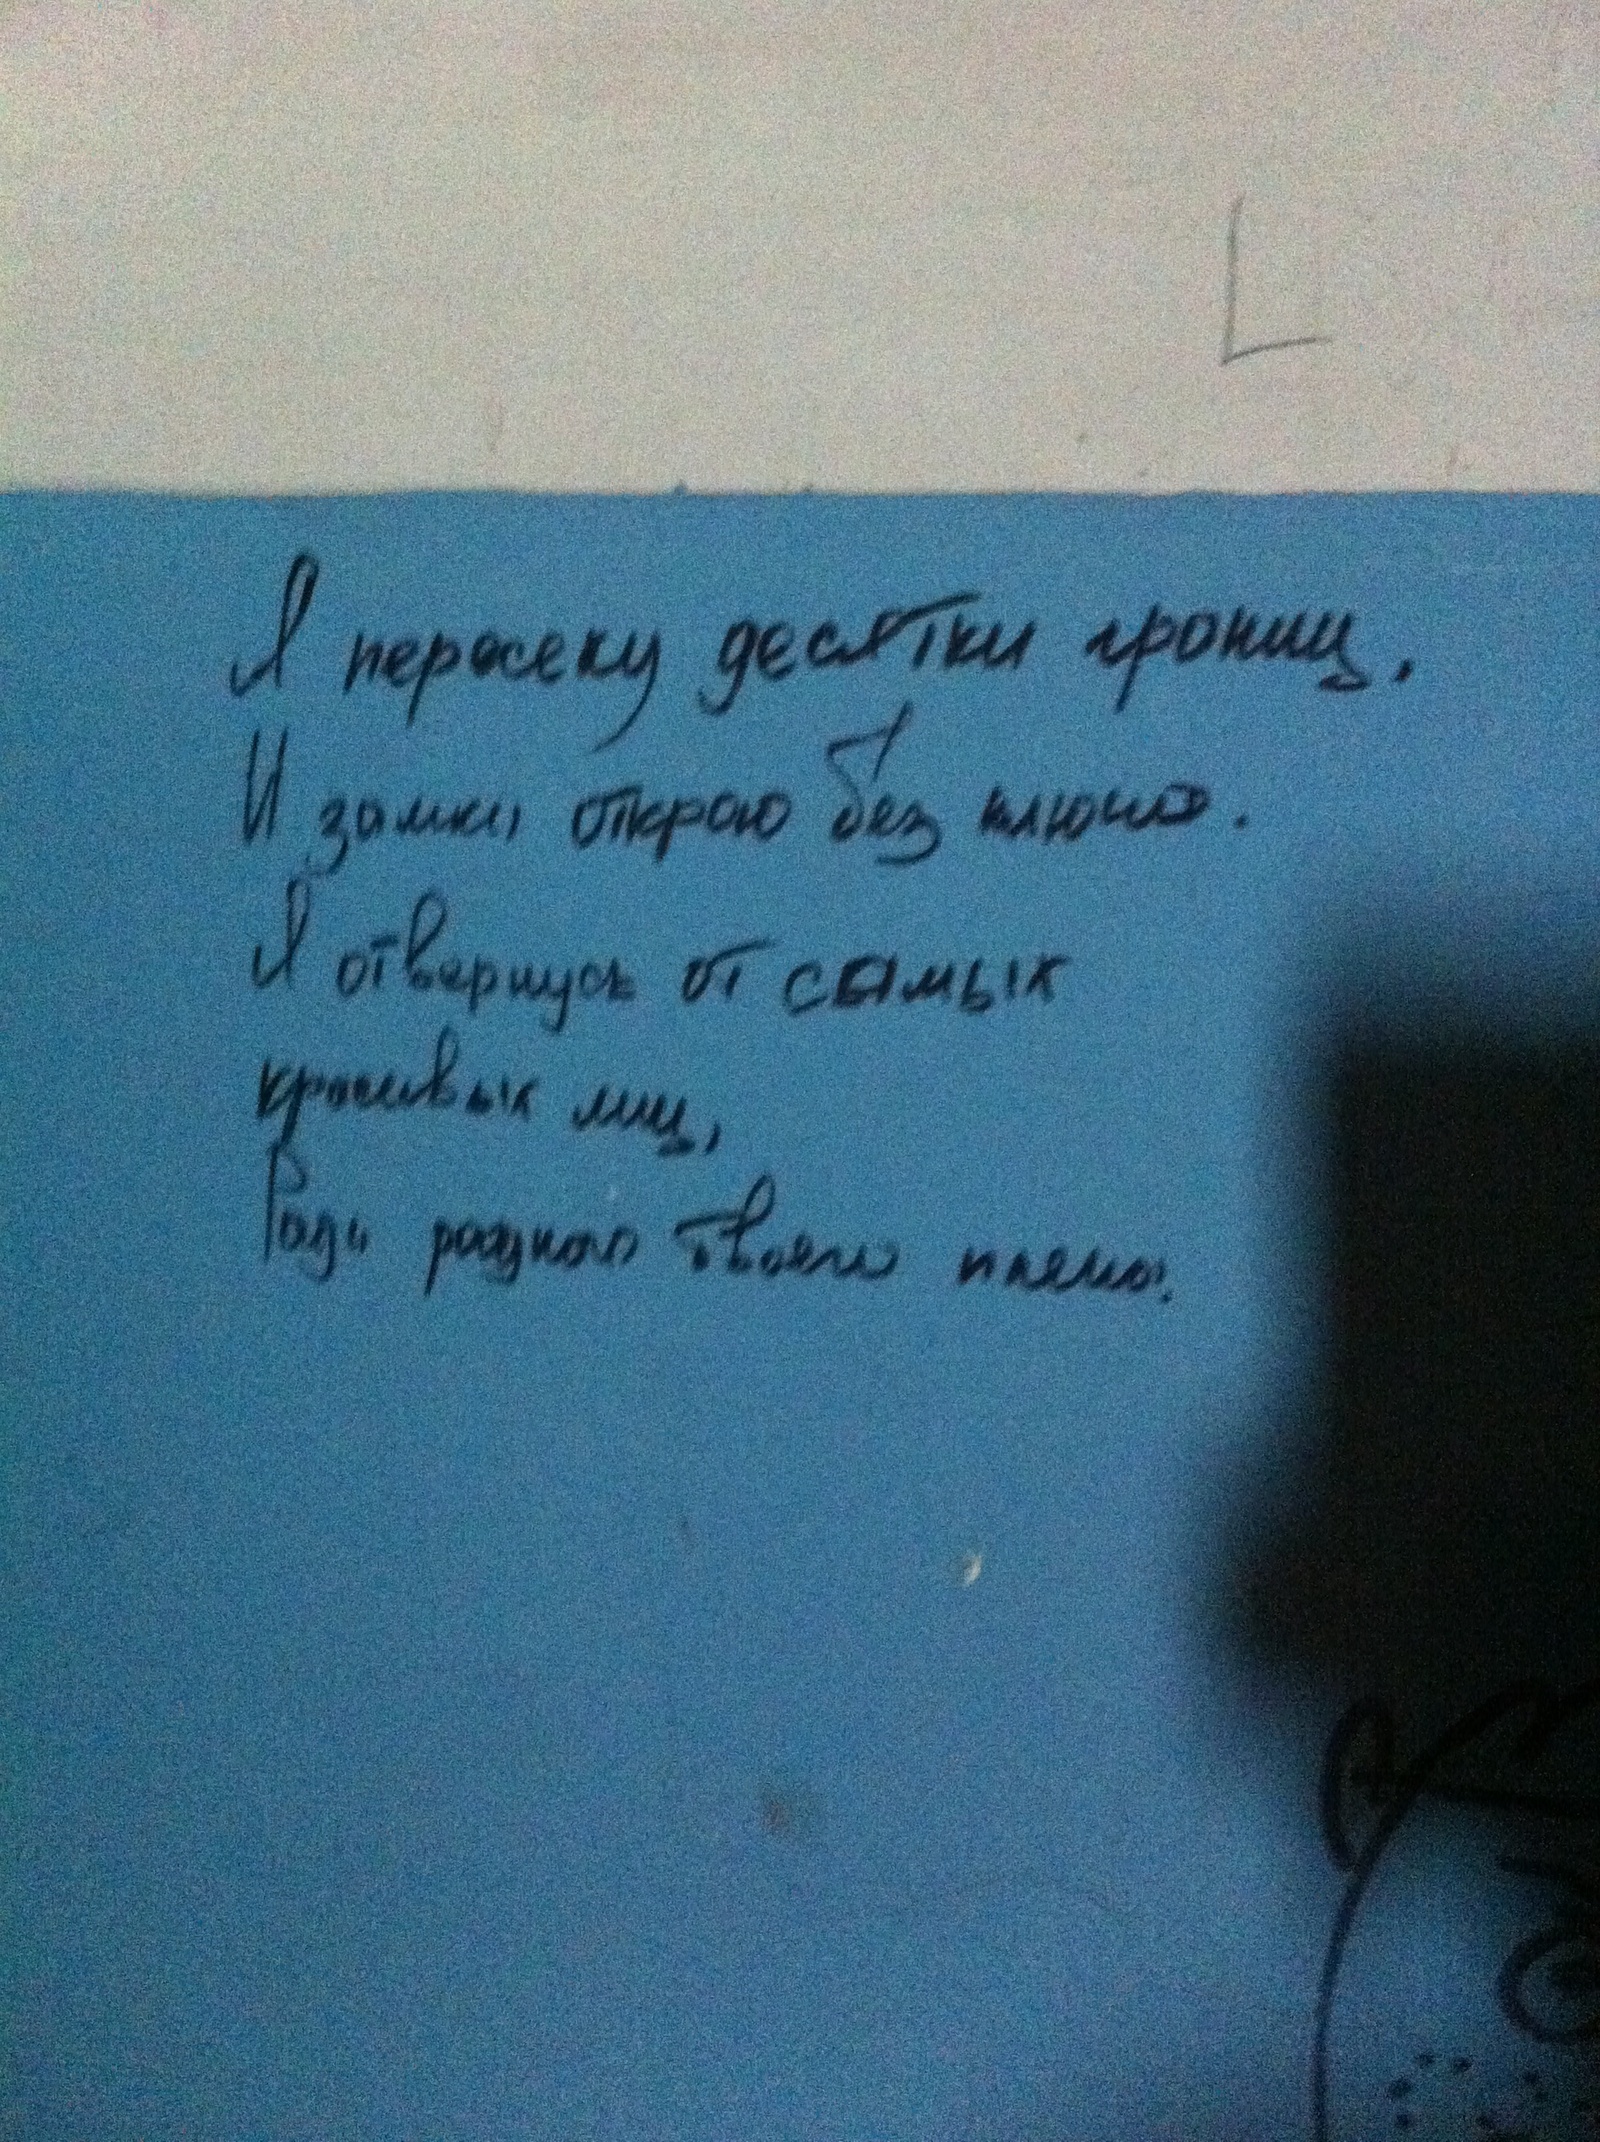 Я пересеку десятки границ,
И замки открою без ключа.
Я отвернусь от самых
красивых лиц,
Ради родного твоего плеча.
L